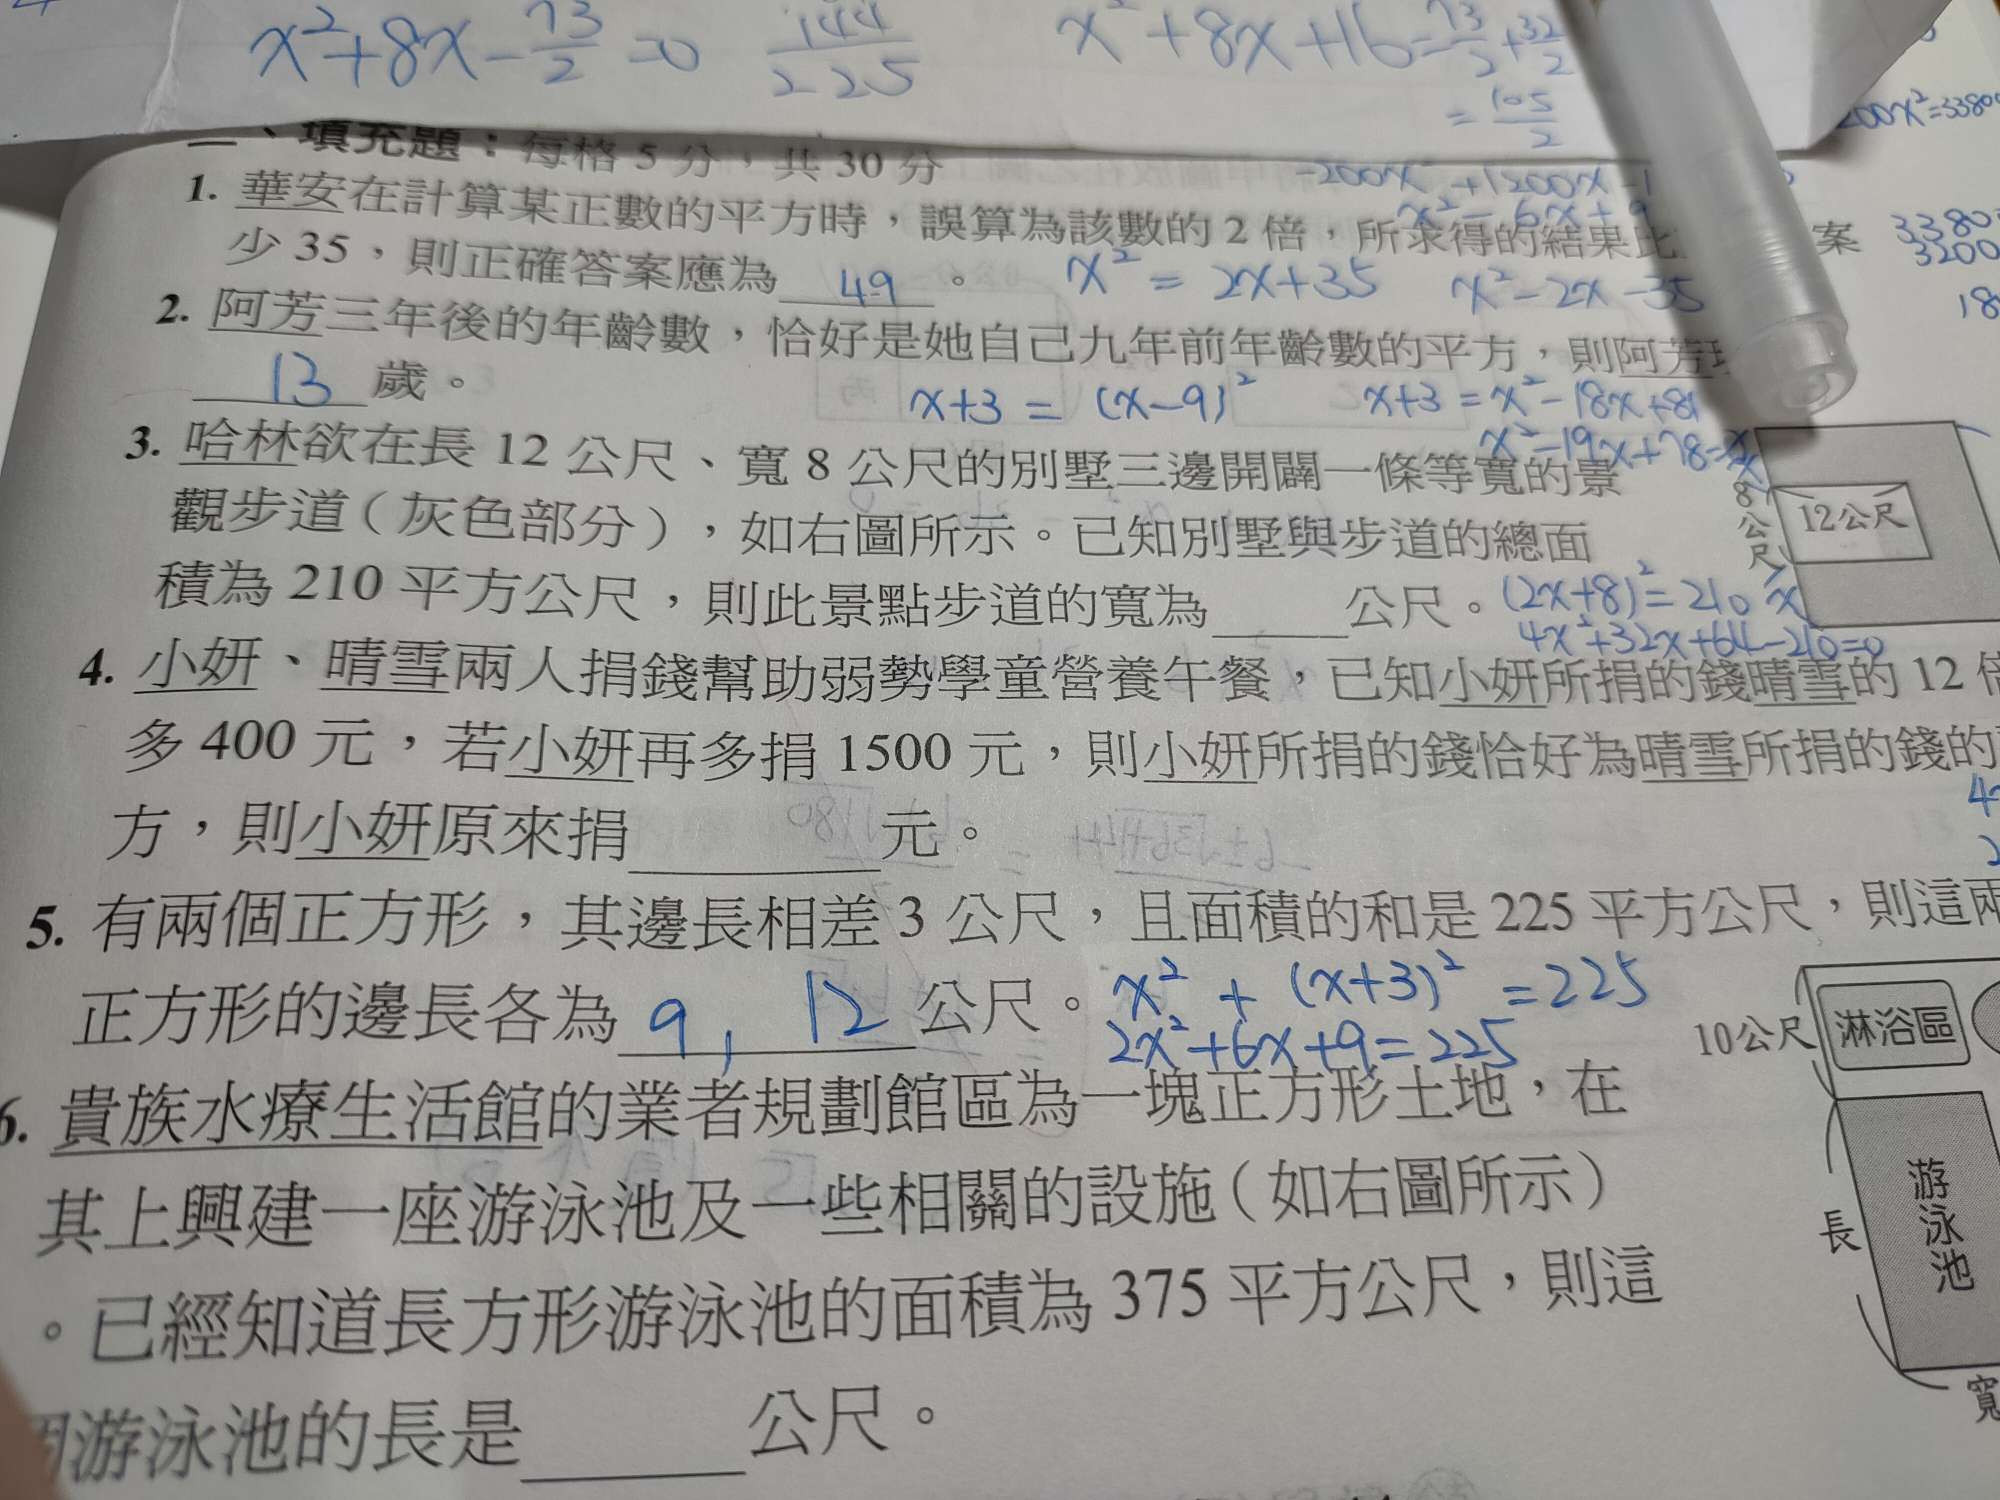 x²+8x-73/2=0 144/225 x²+8x+16=73/2+32/2
=105/2
200x²=3380
二、填充題：每格 5 分，共 30 分
-200x²+1200x-1
x²-6x+9
1. 華安在計算某正數的平方時，誤算為該數的 2 倍，所求得的結果比 案
3380
3200
少 35，則正確答案應為 49 。 x²=2x+35 x²-2x-35
18
2. 阿芳三年後的年齡數，恰好是她自己九年前年齡數的平方，則阿芳
13 歲。 x+3=(x-9)² x+3=x²-18x+81
x²-19x+78
3. 哈林欲在長 12 公尺、寬 8 公尺的別墅三邊開闢一條等寬的景
觀步道（灰色部分），如右圖所示。已知別墅與步道的總面
積為 210 平方公尺，則此景點步道的寬為 公尺。
x
8公尺
12公尺
x
(2x+8)²=210
4x²+32x+64-210=0
4. 小妍、晴雪兩人捐錢幫助弱勢學童營養午餐，已知小妍所捐的錢晴雪的 12
多 400 元，若小妍再多捐 1500 元，則小妍所捐的錢恰好為晴雪所捐的錢的
方，則小妍原來捐 元。
5. 有兩個正方形，其邊長相差 3 公尺，且面積的和是 225 平方公尺，則這兩
正方形的邊長各為 9, 12 公尺。 x²+(x+3)²=225
2x²+6x+9=225
6. 貴族水療生活館的業者規劃館區為一塊正方形土地，在
其上興建一座游泳池及一些相關的設施（如右圖所示）
。已經知道長方形游泳池的面積為 375 平方公尺，則這
游泳池的長是 公尺。
10公尺
淋浴區
長
游泳池
寬